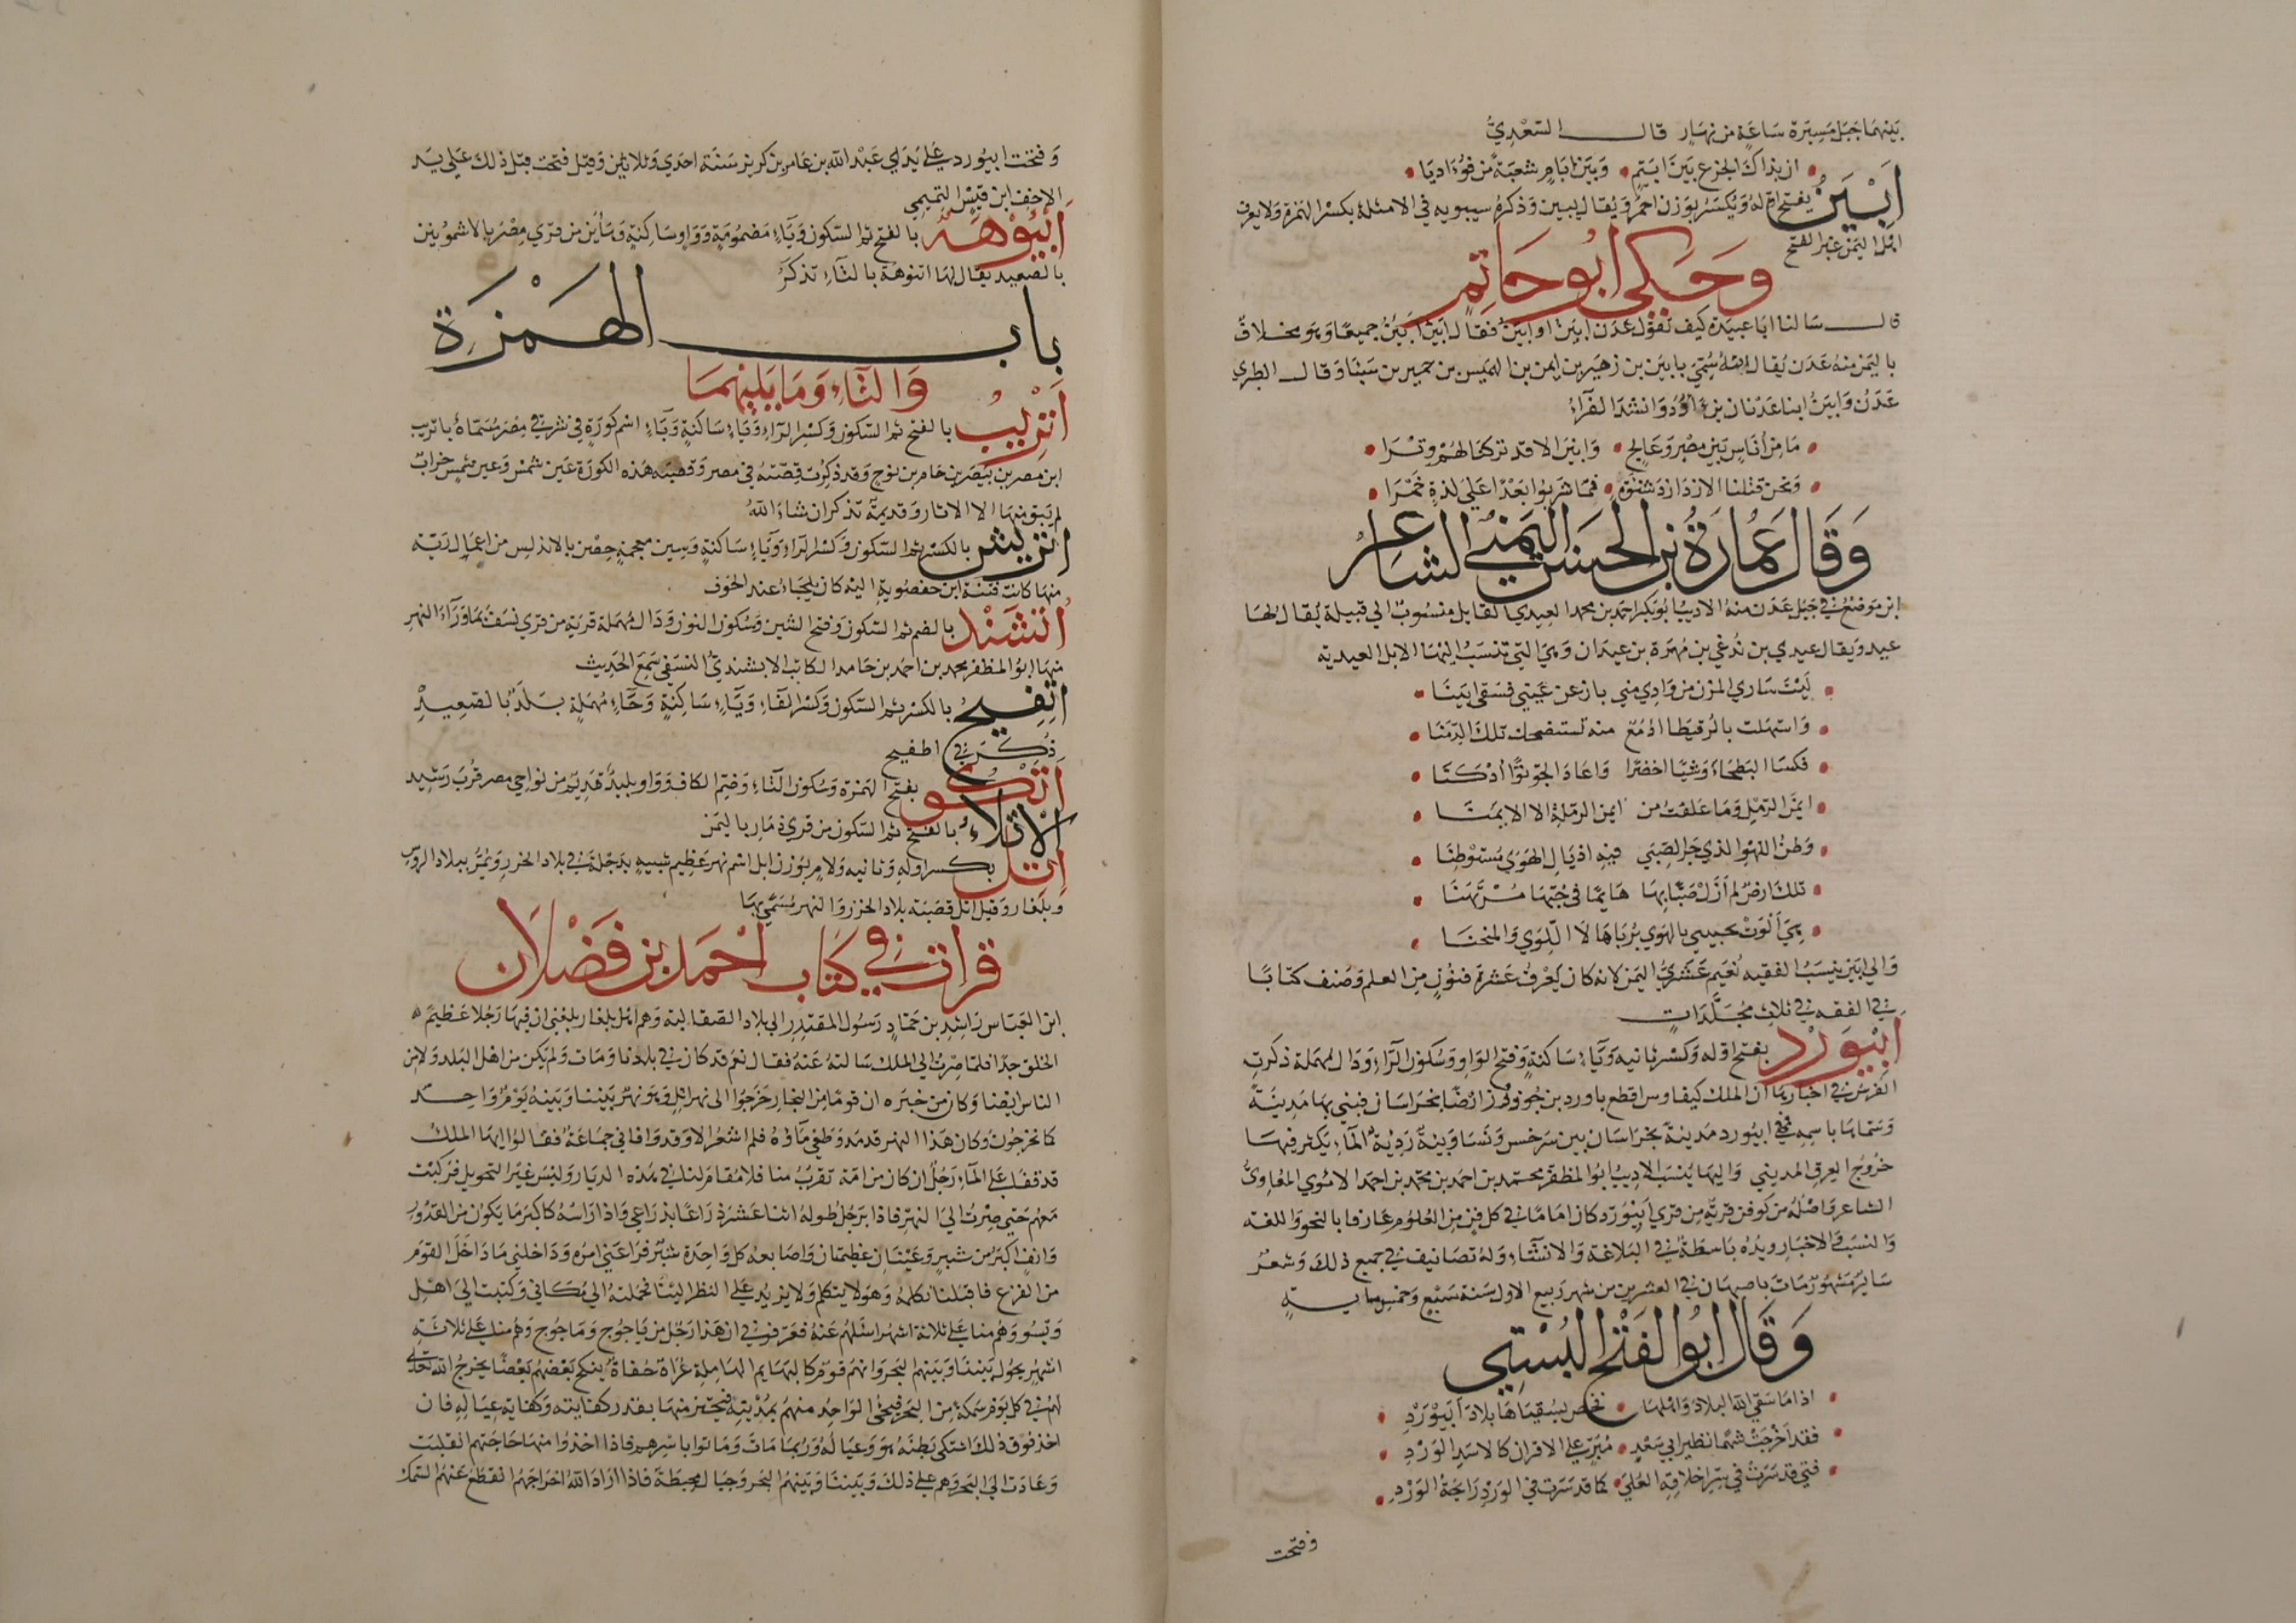 بينهما جبل مسيرة ساعة من نهار قال السعدي
ان بذاك الجزع بين ابيم وبين ابام شعبة من فؤاديا
ابين يفتح اوله ويكسر بوزن احمر ويقال يبين وذكره سيبويه في الامثلة بكسر الهمزة ولا يعرف
اهل اليمن غير الفتح
وحكى ابو حاتم
قال سالنا ابا عبيدة كيف تقول عدن ابين او ابين فقال ابين ابين جميعا وهو مخلاف
باليمن منه عدن يقال انه سمي بابين بن زهير بن ايمن بن الهميس بن حمير بن سبا وقال الطبري
عدن وابين ابنا عدنان بن ادد وانشد الفراء
ما من اناس بين مصر وعالج وابين الا قد تركنا لهم وترا
ونحن قتلنا الازد ازد شنوة فما شربوا بعدا على لذة خمرا
وقال عمارة بن الحسن اليمني الشاعر
ابن موضع في جبل عدن منه الاديب ابو بكر احمد بن محمد العيدي القايل منسوب الي قبيلة يقال لها
عيد ويقال عيدي بن ندغي بن مهرة بن عيدان وهي التي تنسب اليها الابل العيدية
ليت ساري المزن من وادي مني بان عن عيني فسقى ابينا
واستهلت بالرقيطا ادمع منه تستضحك تلك الدمنا
فكسا البطحاء وشيا اخضرا واعاد الجو نوا ادكنا
ايمن الرمل وما علقت من ايمن الرملة الا الايمنا
وطن اللهو الذي جر الصبي فيه اذيال الهوى مستوطنا
تلك ارض لم ازل صبا بها هايما في حبها مرتهنا
هي الوت بحبيبي بالهوي برباها لا اللوي والمنحنا
والي ابين ينسب الفقيه نعيم عشري اليمن لانه كان يعرف عشرة فنون من العلم وصنف كتابا
في الفقه في ثلاث مجلدات
ابيورد بفتح اوله وكسر ثانيه وياء ساكنة وفتح الواو وسكون الراء ودال مهملة ذكرت
الفرس في اخبارها ان الملك كيقاوس اقطع باورد بن جوذرز ارضا بخراسان فبني بها مدينة
وسماها باسمه فهي ابيورد مدينة بخراسان بين سرخس ونسا وبئة ردية الماء يكثر فيها
خروج العرق المديني واليها ينسب الاديب ابو المظفر محمد بن احمد بن محمد بن احمد الاموي المعاوي
الشاعر واصله من كوفن قرية من قري ابيورد كان اماما في كل فن من العلوم عارفا بالنحو واللغة
والنسب والاخبار ويده باسطة في البلاغة والانشاء وله تصانيف في جميع ذلك وشعر
سايره مشهور مات باصبهان في العشرين من شهر ربيع الاول سنة سبع وخمس ماية
وقال ابو الفتح البستي
اذا ما سقي الله البلاد واهلها فخص بسقياها بلاد ابيورد
فقد اخرجت شهما نظير ابي سعد مبر على الاقران كالاسد الورد
فتي قد سرت في سر اخلاقه العلى كما قد سرت في الورد رايحة الورد
وفتحت
وفتحت ابيورد على يدي عبد الله بن عامر بن كريز سنة احدي وثلاثين وقيل فتحت قبل ذلك على يد
الاحنف ابن قيس التميمي
ابيوهة بالفتح ثم السكون وياء مضمومة وواو ساكنة وهاءين من قري مصر بالاشمونين
بالصعيد يقال لها اتنوهة بالتاء تذكر
باب الهمزة
والتاء وما يليهما
اتريب بالفتح ثم السكون وكسر الراء وياء ساكنة وباء اسم كورة في شرقي مصر مسماة باتريب
ابن مصر بن بيصر بن حام بن نوح وقد ذكرت قصته في مصر وقصبة هذه الكورة عين شمس وعين شمس خراب
لم يبق منها الا الاثار وقديمة تذكر ان شاء الله
اتريش بالكسر ثم السكون وكسر الراء وياء ساكنة وشين معجمة حصن بالاندلس من اعمال رية
منها كانت فتنة ابن حفصوية اليه كان يلجاء عند الخوف
اتشند بالضم ثم السكون وفتح الشين وسكون النون ودال مهملة قرية من قري نسف بما وراء النهر
منها ابو المظفر محمد بن احمد بن حامد الكاتب الاتشندي النسفي سمع الحديث
اتفيح بالكسر ثم السكون وكسر الفاء وياء ساكنة وحاء مهملة بلد بالصعيد
ذكر في اطفيح
اتكو بفتح الهمزة وسكون التاء وضم الكاف وواو بليد قديم من نواحي مصر قرب رشيد
الاتلاء بالفتح ثم السكون من قرى ذمار باليمن
اتل بكسر اوله وثانيه ولام بوزن ابل اسم نهر عظيم شبيه بدجلة في بلاد الخزر ويمر ببلاد الروس
وبلغار وقيل اتل قصبة بلاد الخزر والنهر مسمي بها
قرات في كتاب احمد بن فضلان
ابن العباس راشد بن حماد رسول المقتدر الي بلاد الصقالبة وهم اهل بلغار بلغني ان فيها رجلا عظيم
الخلق جدا فلما صرت الي الملك سالته عنه فقال نعم قد كان في بلدنا ومات ولم يكن من اهل البلد ولا من
الناس ايضا وكان من خبره ان قوما من التجار خرجوا الى نهر اتل وهو نهر بيننا وبينه يوم واحد
كما يخرجون وكان هذا النهر قد مد وطغي ماؤه فلم اشعر الا وقد وافاني جماعة فقالوا ايها الملك
قد قفا على الماء رجل ان كان من امة تقرب منا فلا مقام لنا في هذه الديار وليس غير التحويل فركبت
معهم حتي صرت الي النهر فاذا برجل طوله اثنا عشر ذراعا بذراعي واذا راسه كاكبر ما يكون من القدور
وانف اكبر من شبر وعينان عظيمتان واصابعه كل واحدة شبر فراعني امره وداخلني ما داخل القوم
من الفزع فاقبلنا نكلمه وهو لا يتكلم ولا يزيد على النظر الينا فحملته الي مكاني وكتبت الي اهل
ويسو وهم منا على ثلاثة اشهر اسالهم عنه فعرفوني ان هذا رجل من ياجوج وماجوج وهم منا على ثلاثة
اشهر يحول بيننا وبينهم البحر وانهم قوم كالبهايم الهاملة عراة حفاة ينكح بعضهم بعضا يخرج الله تعالى
لهم في كل يوم سمكة من البحر فيجئ الواحد منهم بمدية فيجتز منها بقدر كفايته وكفاية عياله فان
اخذ فوق ذلك اشتكى بطنه هو وعياله وربما مات وماتوا باسرهم فاذا اخذوا منها حاجتهم انقلبت
وعادت الي البحر وهم على ذلك وبيننا وبينهم البحر وجبال محيطة فاذا اراد الله اخراجهم انقطع عنهم السمك